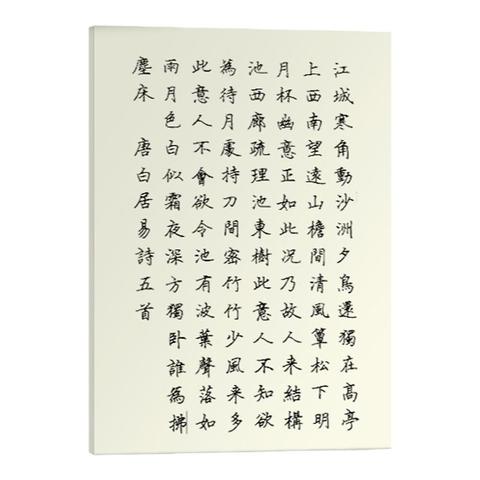 江城寒角動沙洲夕鳥還獨在高亭
上西南望遠山檐間清風簟松下明
月杯幽意正如此况乃故人来結構
池西廊疏理池東樹此意人不知欲
為待月處持刀間密竹竹少風来多
此意人不會欲令池有波葉聲落如
雨月色白似霜夜深方獨卧誰為拂
塵床 唐白居易詩五首